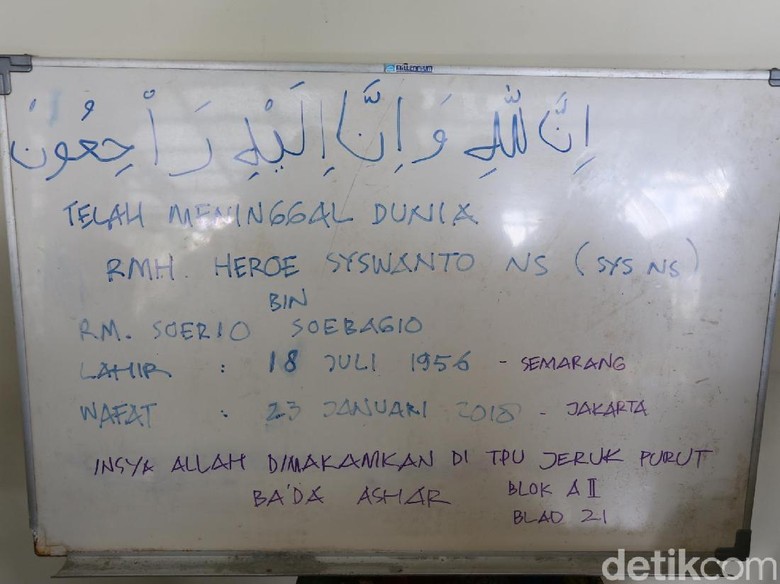 إِنَّ لِلّٰهِ وَإِنَّا إِلَيْهِ رَاْجِعُونَ
TELAH MENINGGAL DUNIA
RMH. HEROE SYSWANTO NS (SYS NS)
BIN
RM. SOERIO SOEBAGIO
LAHIR : 18 JULI 1956 - SEMARANG
WAFAT : 23 JANUARI 2018 - JAKARTA
INSYA ALLAH DIMAKAMKAN DI TPU JERUK PURUT
BA'DA ASHAR BLOK A II
BLAD 21
detikcom